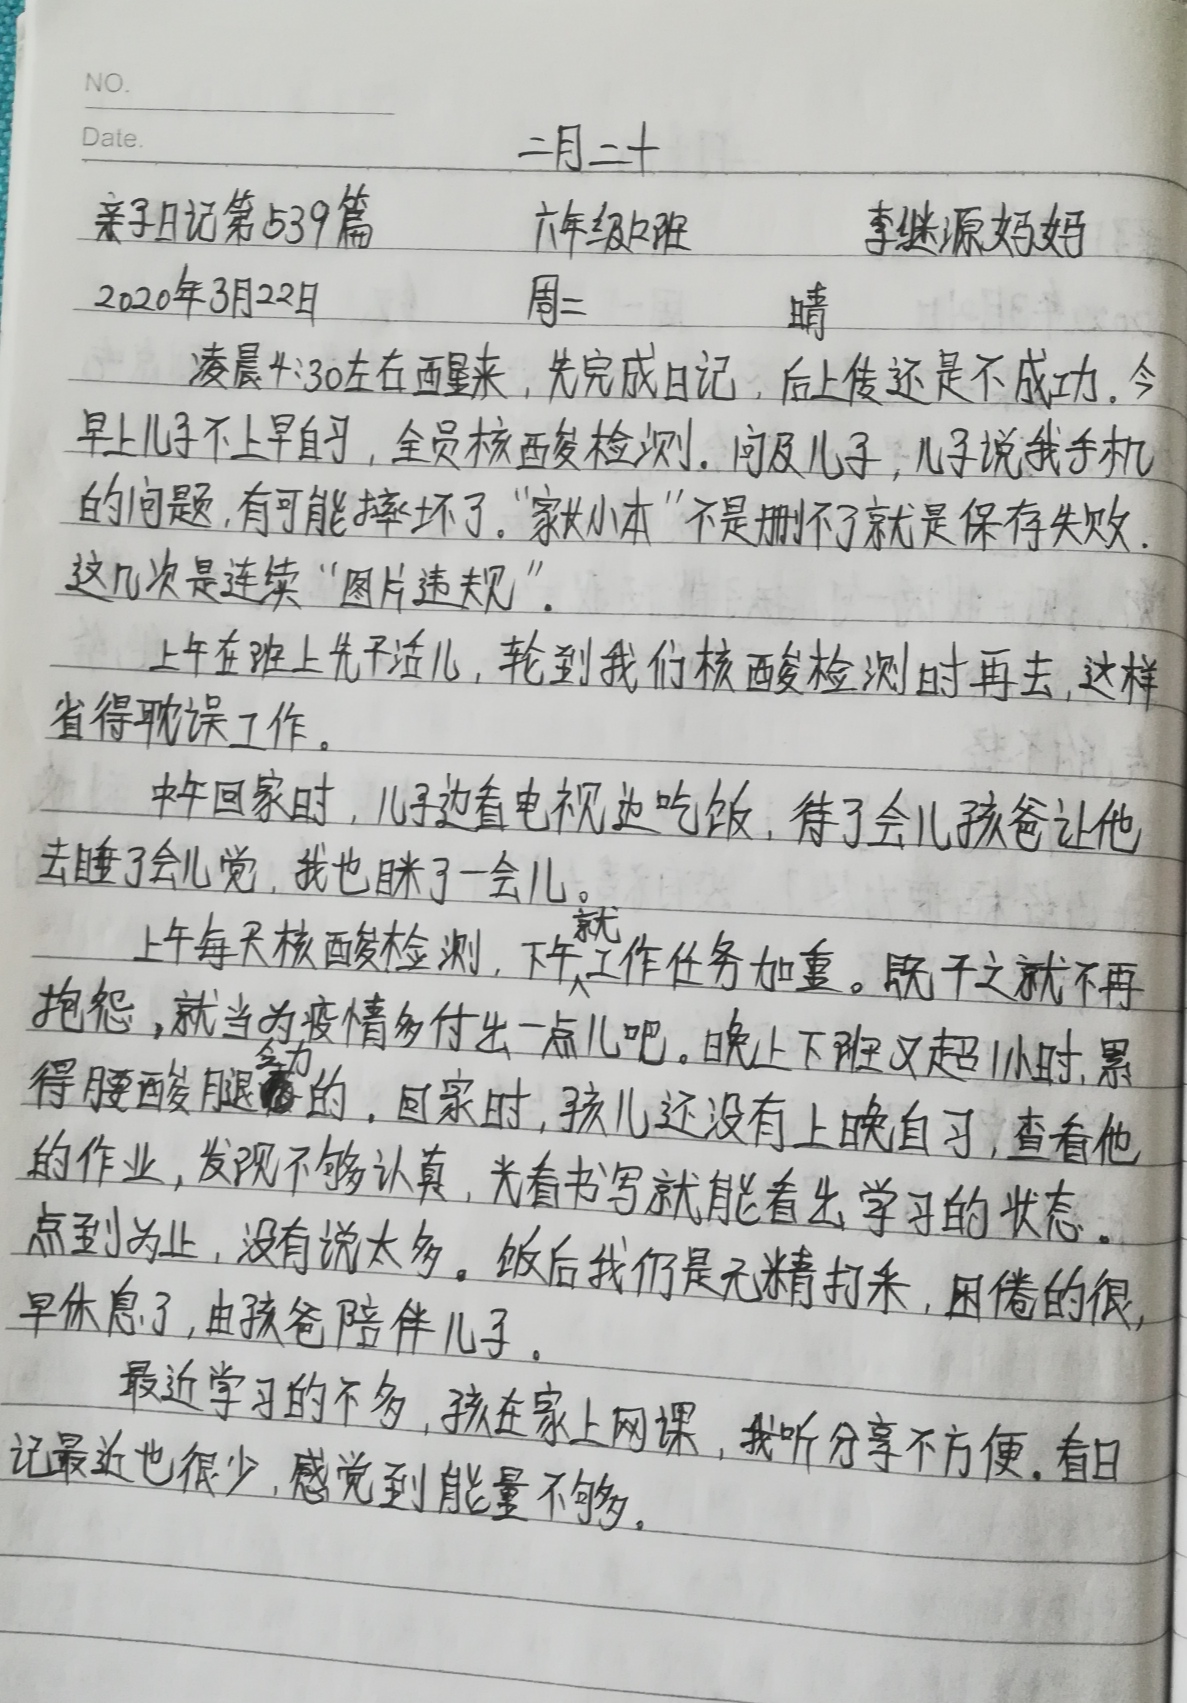 NO.
Date.
二月二十
亲子日记第539篇 六年级12班 李继源妈妈
2020年3月22日 周二 晴
凌晨4:30左右醒来，先完成日记，后上传还是不成功。今
早上儿子不上早自习，全员核酸检测。问及儿子，儿子说我手机
的问题，有可能摔坏了。“家女小本”不是删不了就是保存失败.
这几次是连续“图片违规”.
上午在班上先干活儿，轮到我们核酸检测时再去，这样
省得耽误工作。
中午回家时，儿子边看电视边吃饭，待了会儿孩爸让他
去睡了会儿觉，我也眯了一会儿。
上午每天核酸检测，下午就工作任务加重。既干之就不再
抱怨，就当为疫情多付出一点儿吧。晚上下班又超1小时，累
得腰酸腿疼的。回家时，孩儿还没有上晚自习，查看他
的作业，发现不够认真，光看书写就能看出学习的状态。
点到为止，没有说太多。饭后我仍是无精打采，困倦的很，
早休息了，由孩爸陪伴儿子.
最近学习的不多，孩在家上网课，我听分享不方便。看日
记最近也很少，感觉到能量不够。